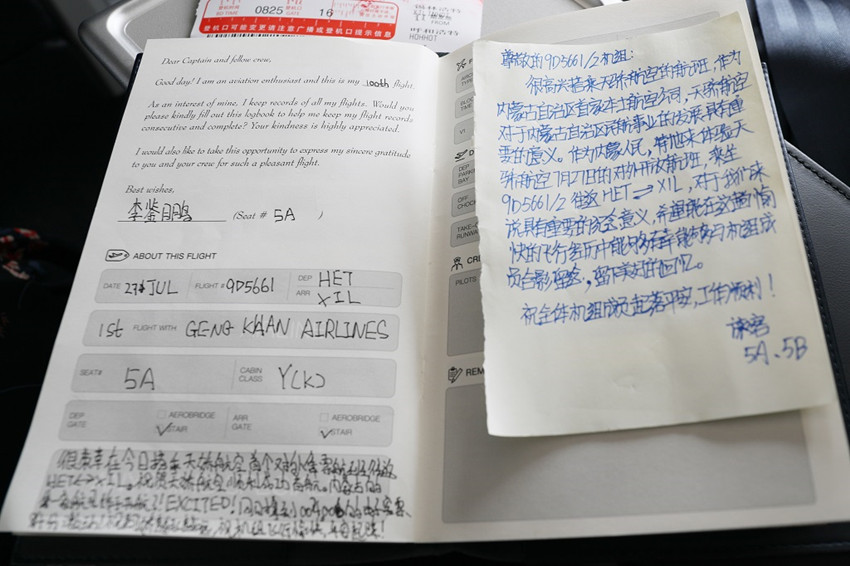 0825
16
锡林浩特
FROM
呼和浩特
HOHHOT
登机口可能变更请注意广播或登机口提示信息
Dear Captain and fellow crew,
Good day! I am an aviation enthusiast and this is my 100th flight.
As an interest of mine, I keep records of all my flights. Would you
please kindly fill out this logbook to help me keep my flight records
consecutive and complete? Your kindness is highly appreciated.
I would also like to take this opportunity to express my sincere gratitude
to you and your crew for such a pleasant flight.
Best wishes,
李鉴鹏 (Seat # 5A )
ABOUT THIS FLIGHT
DATE 27 JUL FLIGHT# 9D5661 DEP HET
ARR XIL
1st FLIGHT WITH GENG KHAN AIRLINES
SEAT# 5A CABIN CLASS Y(K)
DEP GATE AEROBRIDGE ARR GATE AEROBRIDGE
STAIR STAIR
很荣幸在今日搭乘天骄航空首个对外
HET XIL
EXCITED!
尊敬的9D5661/2机组:
很高兴搭乘天骄航空的航班,作为
内蒙古自治区首家本土航空公司,天骄航空
对于内蒙古自治区民航事业的发展具有重
要的意义。作为内蒙人民,特地来体验天
骄航空7月27日的对外开放航班,来坐
9D5661/2往返HET⇌XIL,对于我们来
说具有重要的纪念意义,希望能在这趟愉
快的飞行经历中能够有幸能够与机组成
员合影留念,留下美好的回忆。
祝全体机组成员起落平安,工作顺利!
旅客
5A、5B
VI
OFF
PILOTS